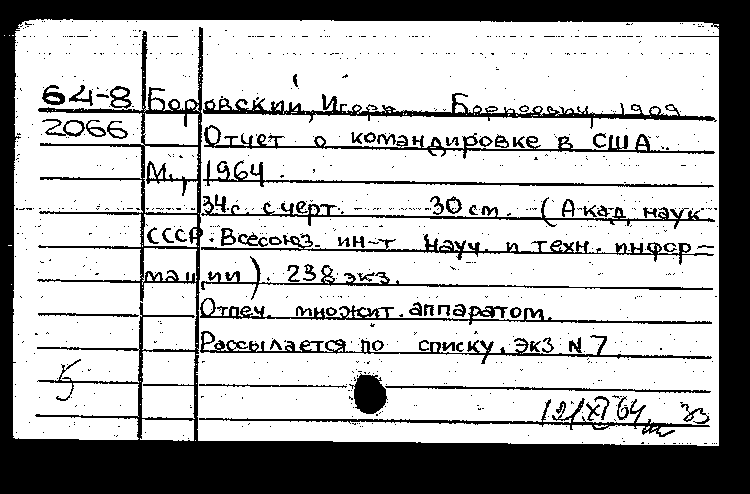 64-8 Боровский, Игорь 1909
2066 Отчет о командировке в США.
М., 1964.
34с. с черт. 30 см. (Акад. наук
СССР. Всесоюз. ин-т науч. и техн. инфор=
мации). 238 экз.
Отпеч. множит. аппаратом.
Рассылается по списку. Экз N 7
5
12/XI 64